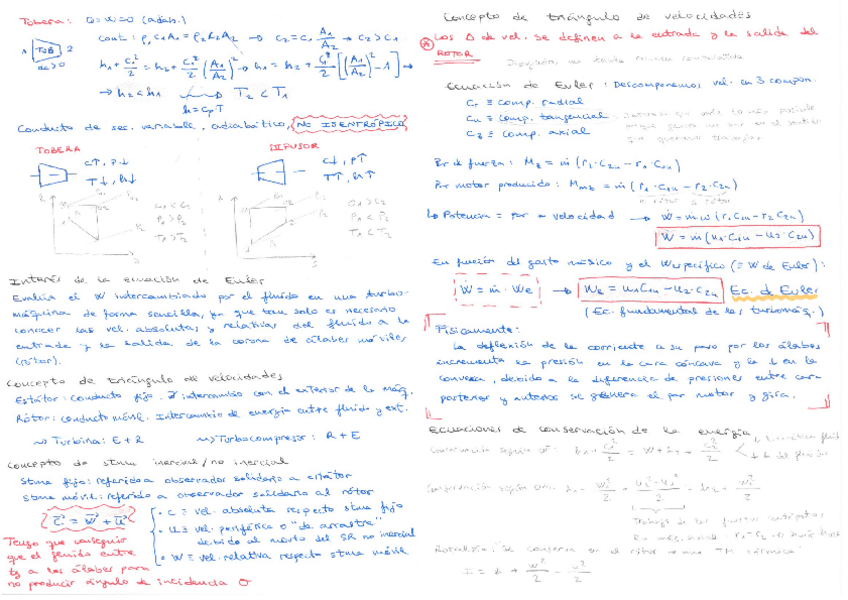 Tobera: Q=W=0 (adiab.)
1 TOB 2
cont: ρ₁c₁A₁ = ρ₂c₂A₂ → c₂ = c₁ A₁/A₂ → c₂ > c₁
h₁ + c₁²/2 = h₂ + c₁²/2 (A₁/A₂)² → h₁ = h₂ + c₁²/2 [(A₁/A₂)² - 1] →
→ h₂ < h₁ T₂ < T₁
h = CpT
Conducto de sec. variable, adiabático, NO ISENTRÓPICO
TOBERA DIFUSOR
c↑, p↓ c↓, p↑
T↓, h↓ T↑, h↑
Interés de la ecuación de Euler
Evalúa el W intercambiado por el fluido en una turbo-
máquina de forma sencilla, ya que tan solo es necesario
conocer las vel. absolutas y relativas del fluido a la
entrada y la salida de la corona de álabes móviles
(rótor).
Concepto de triángulo de velocidades
Estátor: conducto fijo. intercambio con el exterior de la máq.
Rótor: conducto móvil. Intercambio de energía entre fluido y ext.
→ Turbina: E + R → Turbocompresor: R + E
Concepto de stma inercial/no inercial
Stma fijo: referido a observador solidario a estátor
stma móvil: referido a observador solidario al rótor
c = w + u
· c ≡ vel. absoluta respecto stma fijo
· u ≡ vel. periférica o "de arrastre"
debido al movto del SR no inercial
· w ≡ vel. relativa respecto stma móvil
Tengo que conseguir
que el fluido entre
tg a los álabes para
no producir ángulo de incidencia
Concepto de triángulo de velocidades
Los Δ de vel. se definen a la entrada y la salida del
ROTOR
Ecuación de Euler: Descomponemos vel. en 3 compon.
Cr ≡ comp. radial
Cu ≡ comp. tangencial
Cz ≡ comp. axial
Par de fuerza: Mz = ṁ (r₂·C₂u - r₁C₁u)
Par motor producido: Mmz = ṁ (r₁·C₁u - r₂·C₂u)
↳ Potencia = par · velocidad → Ẇ = ṁω (r₁C₁u - r₂C₂u)
Ẇ = ṁ (u₁·C₁u - u₂·C₂u)
En función del gasto másico y el W específico (≡ W de Euler):
Ẇ = ṁ · We → We = u₁C₁u - u₂·C₂u Ec. de Euler
(Ec. fundamental de las turbomáq.)
Físicamente:
La deflexión de la corriente a su paso por los álabes
incrementa la presión en la cara cóncava y la ↓ en la
convexa, debido a la diferencia de presiones entre cara
posterior y anterior se genera el par motor y gira.
Ecuaciones de conservación de la energía